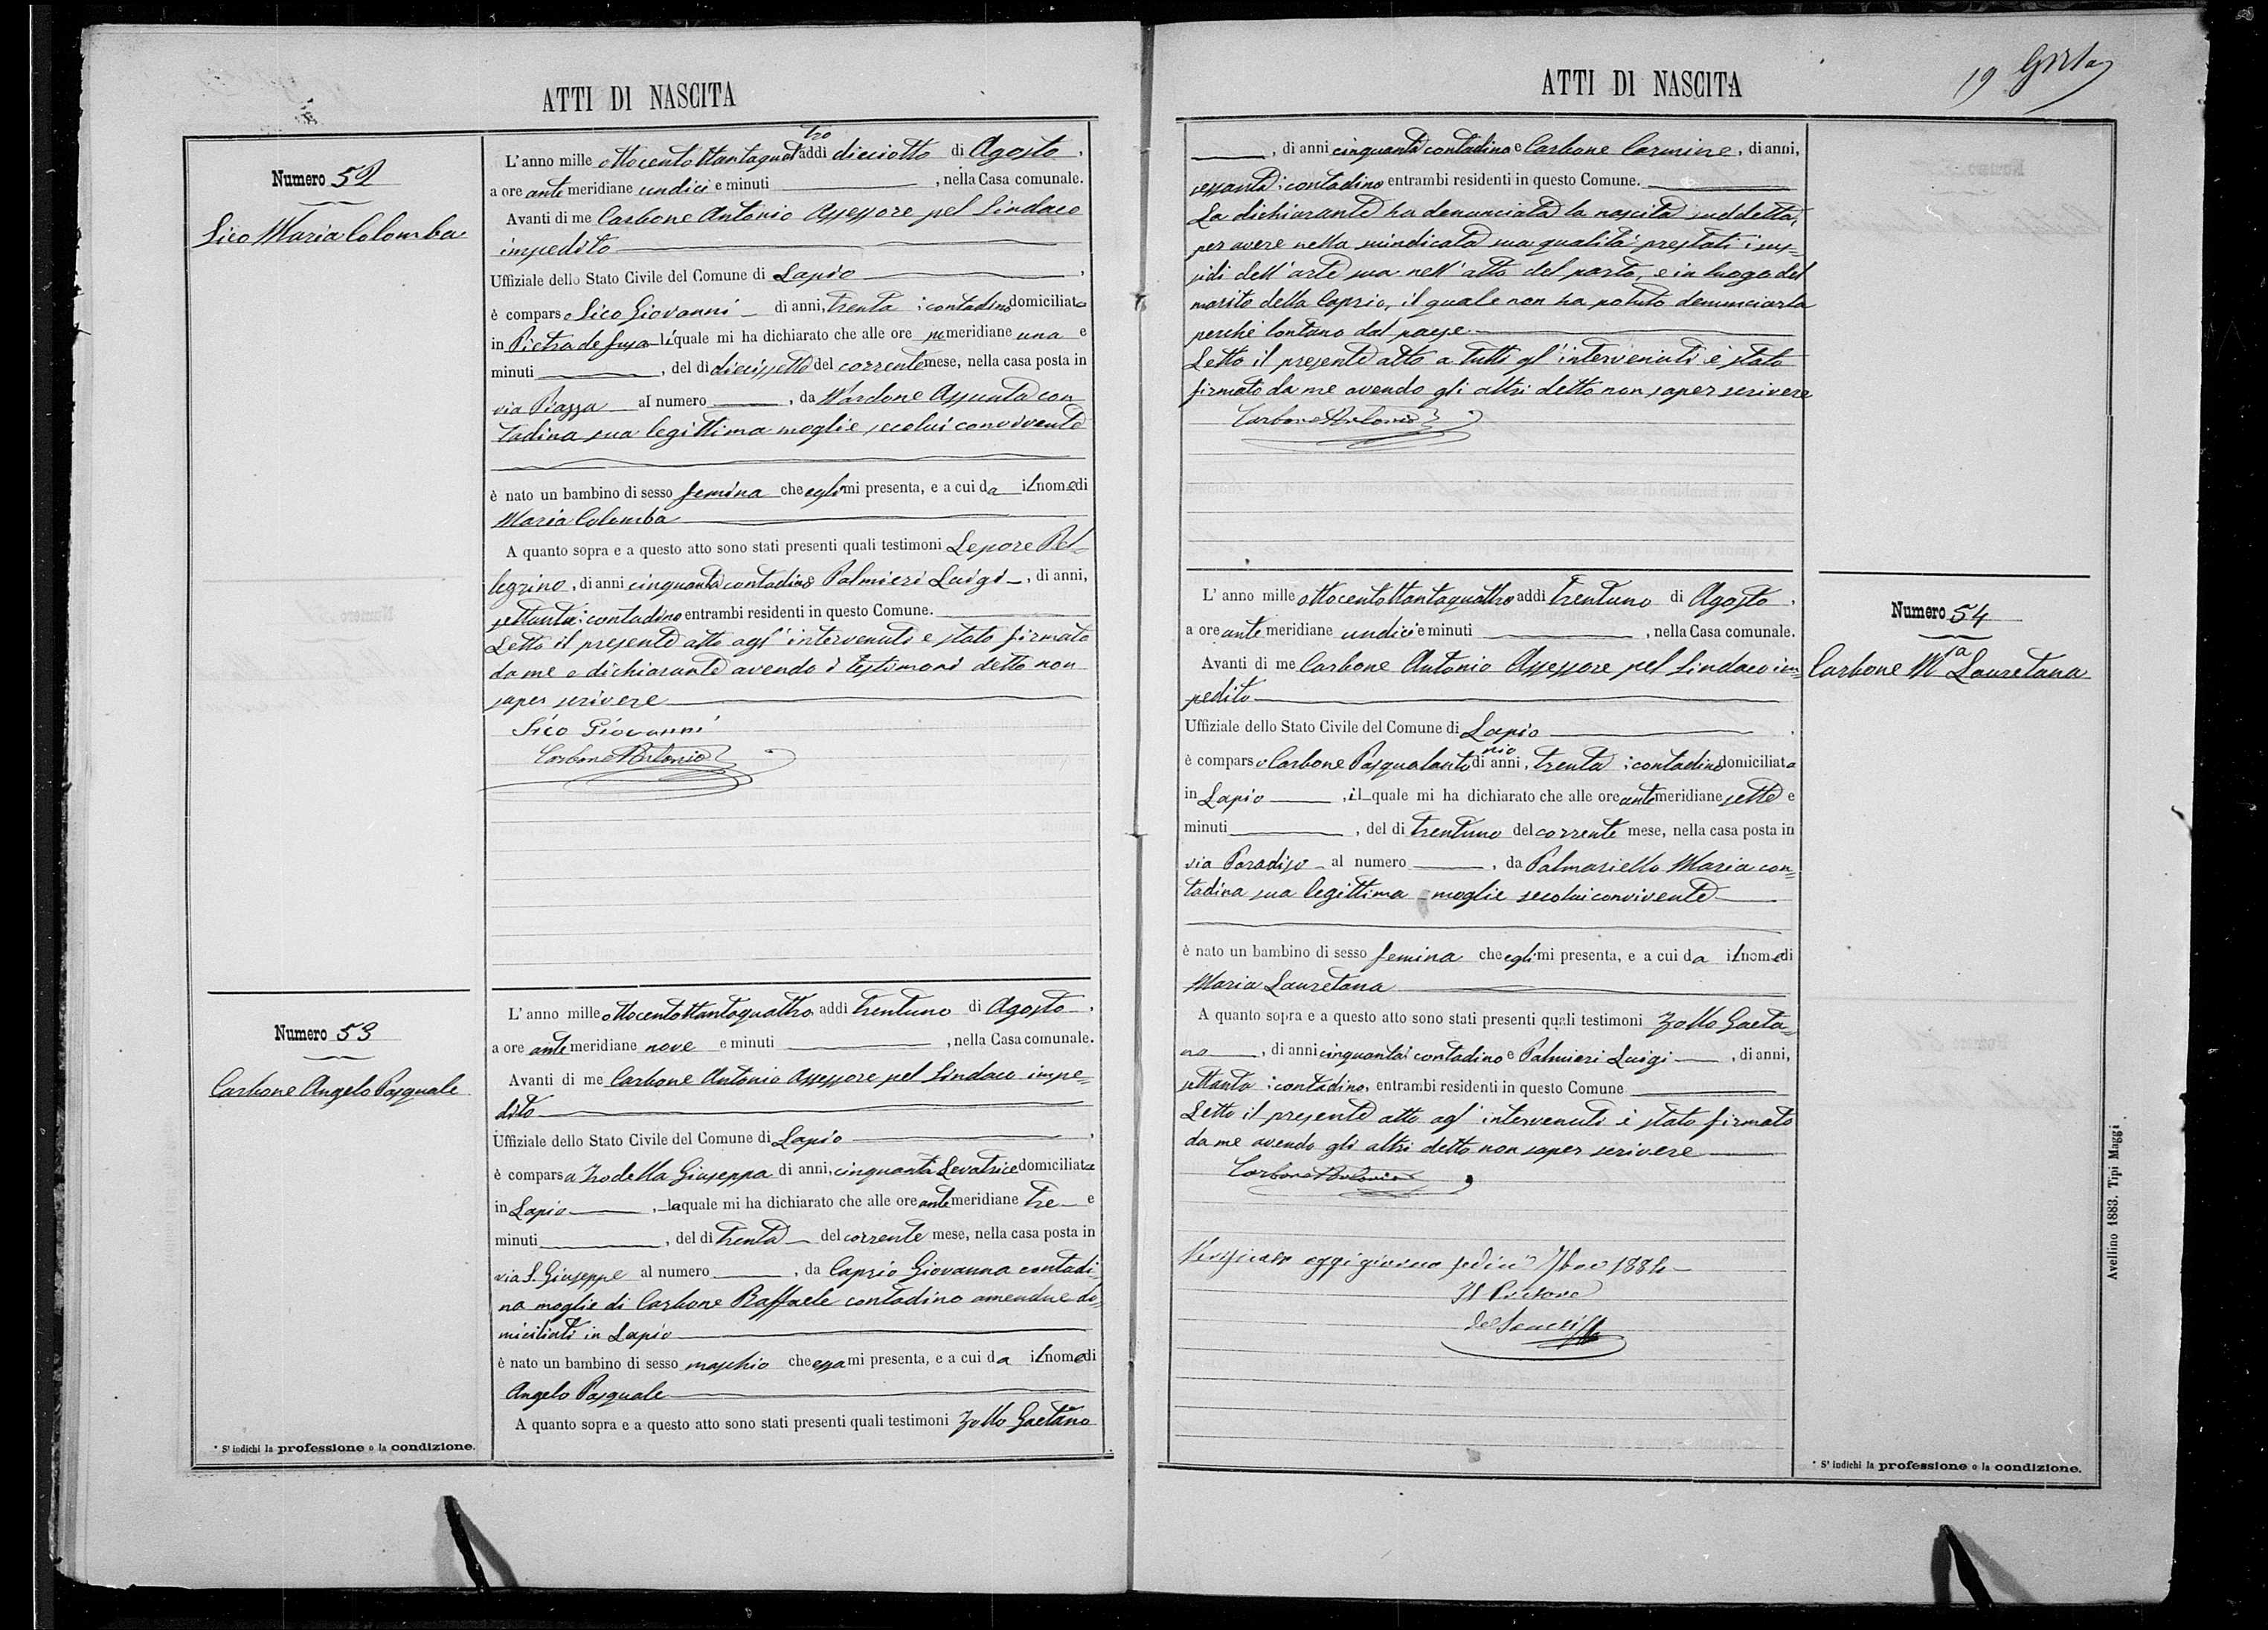 ATTI DI NASCITA
Numero 52
Sico Maria Colomba
L'anno mille ottocentottantaquattro addì dieciotto di Agosto,
a ore antemeridiane undici e minuti , nella Casa comunale.
Avanti di me Carbone Antonio Assessore pel Sindaco
impedito
Uffiziale dello Stato Civile del Comune di Lapio ,
è comparso Sico Giovanni di anni, trenta ; contadino domiciliato
in Pietra de fusa il quale mi ha dichiarato che alle ore pomeridiane una e
minuti , del dì diecissette del corrente mese, nella casa posta in
via Piazza al numero , da Nardone Assunta con
tadina sua legittima moglie secolui convivente
è nato un bambino di sesso femina che egli mi presenta, e a cui da il nome di
Maria Colomba
A quanto sopra e a questo atto sono stati presenti quali testimoni Lepore Pel=
legrino, di anni cinquanta contadino Palmieri Luigi , di anni,
settanta ; contadino entrambi residenti in questo Comune.
Letto il presente atto agl' intervenuti è stato firmato
da me e dichiarante avendo i testimoni detto non
saper scrivere
Sico Giovanni
Carbone Antonio
Numero 53
Carbone Angelo Pasquale
L'anno mille ottocentottantaquattro addì trentuno di Agosto ,
a ore antemeridiane nove e minuti , nella Casa comunale.
Avanti di me Carbone Antonio Assessore pel Sindaco impe=
dito
Uffiziale dello Stato Civile del Comune di Lapio ,
è comparsa Trodella Giuseppa di anni, cinquanta Levatrice domiciliata
in Lapio , la quale mi ha dichiarato che alle ore antemeridiane tre e
minuti , del dì trenta del corrente mese, nella casa posta in
via S. Giuseppe al numero , da Caprio Giovanna contadi
na moglie di Carbone Raffaele contadino amendue do=
miciliati in Lapio
è nato un bambino di sesso maschio che essa mi presenta, e a cui da il nome di
Angelo Pasquale
A quanto sopra e a questo atto sono stati presenti quali testimoni Zollo Gaetano
* S' indichi la professione o la condizione.
ATTI DI NASCITA
19
, di anni cinquanta contadino e Carbone Carmine, di anni,
sessanta ; contadino entrambi residenti in questo Comune.
La dichiarante ha denunciata la nascita suddetta,
per avere nella suindicata sua qualità prestati i sus=
sidi dell' arte sua nell' atto del parto, e in luogo del
marito della Caprio, il quale non ha potuto denunciarla
perchè lontano dal paese.
Letto il presente atto a tutti gl' intervenuti è stato
firmato da me avendo gli altri detto non saper scrivere
Carbone Antonio
L' anno mille ottocentottantaquattro addì trentuno di Agosto ,
a ore antemeridiane undici e minuti , nella Casa comunale.
Avanti di me Carbone Antonio Assessore pel Sindaco im=
pedito
Uffiziale dello Stato Civile del Comune di Lapio .
è comparso Carbone Pasqualantonio di anni, trenta ; contadino domiciliato
in Lapio , il quale mi ha dichiarato che alle ore antemeridiane sette e
minuti , del dì trentuno del corrente mese, nella casa posta in
via Paradiso al numero , da Palmariello Maria con=
tadina sua legittima moglie secolui convivente
è nato un bambino di sesso femina che egli mi presenta, e a cui da il nome di
Maria Lauretana
A quanto sopra e a questo atto sono stati presenti quali testimoni Zollo Gaeta=
no , di anni cinquanta ; contadino e Palmieri Luigi , di anni,
settanta ; contadino, entrambi residenti in questo Comune
Letto il presente atto agl' intervenuti è stato firmato
da me avendo gli altri detto non saper scrivere
Carbone Antonio
Verificato oggi giorno sedici 7bre 1884
Il Pretore
Numero 54
Carbone Mª Lauretana
* S' indichi la professione o la condizione.
Avellino 1883. Tipi Maggi.